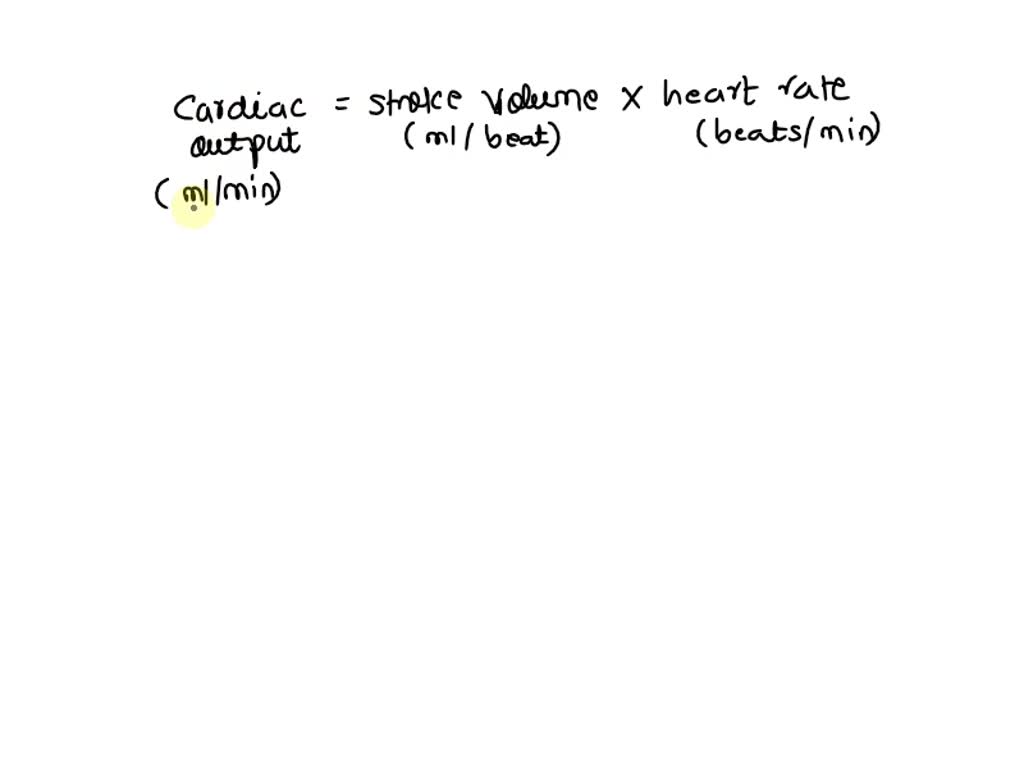 Cardiac = stroke volume x heart rate
output (ml/beat) (beats/min)
(ml/min)